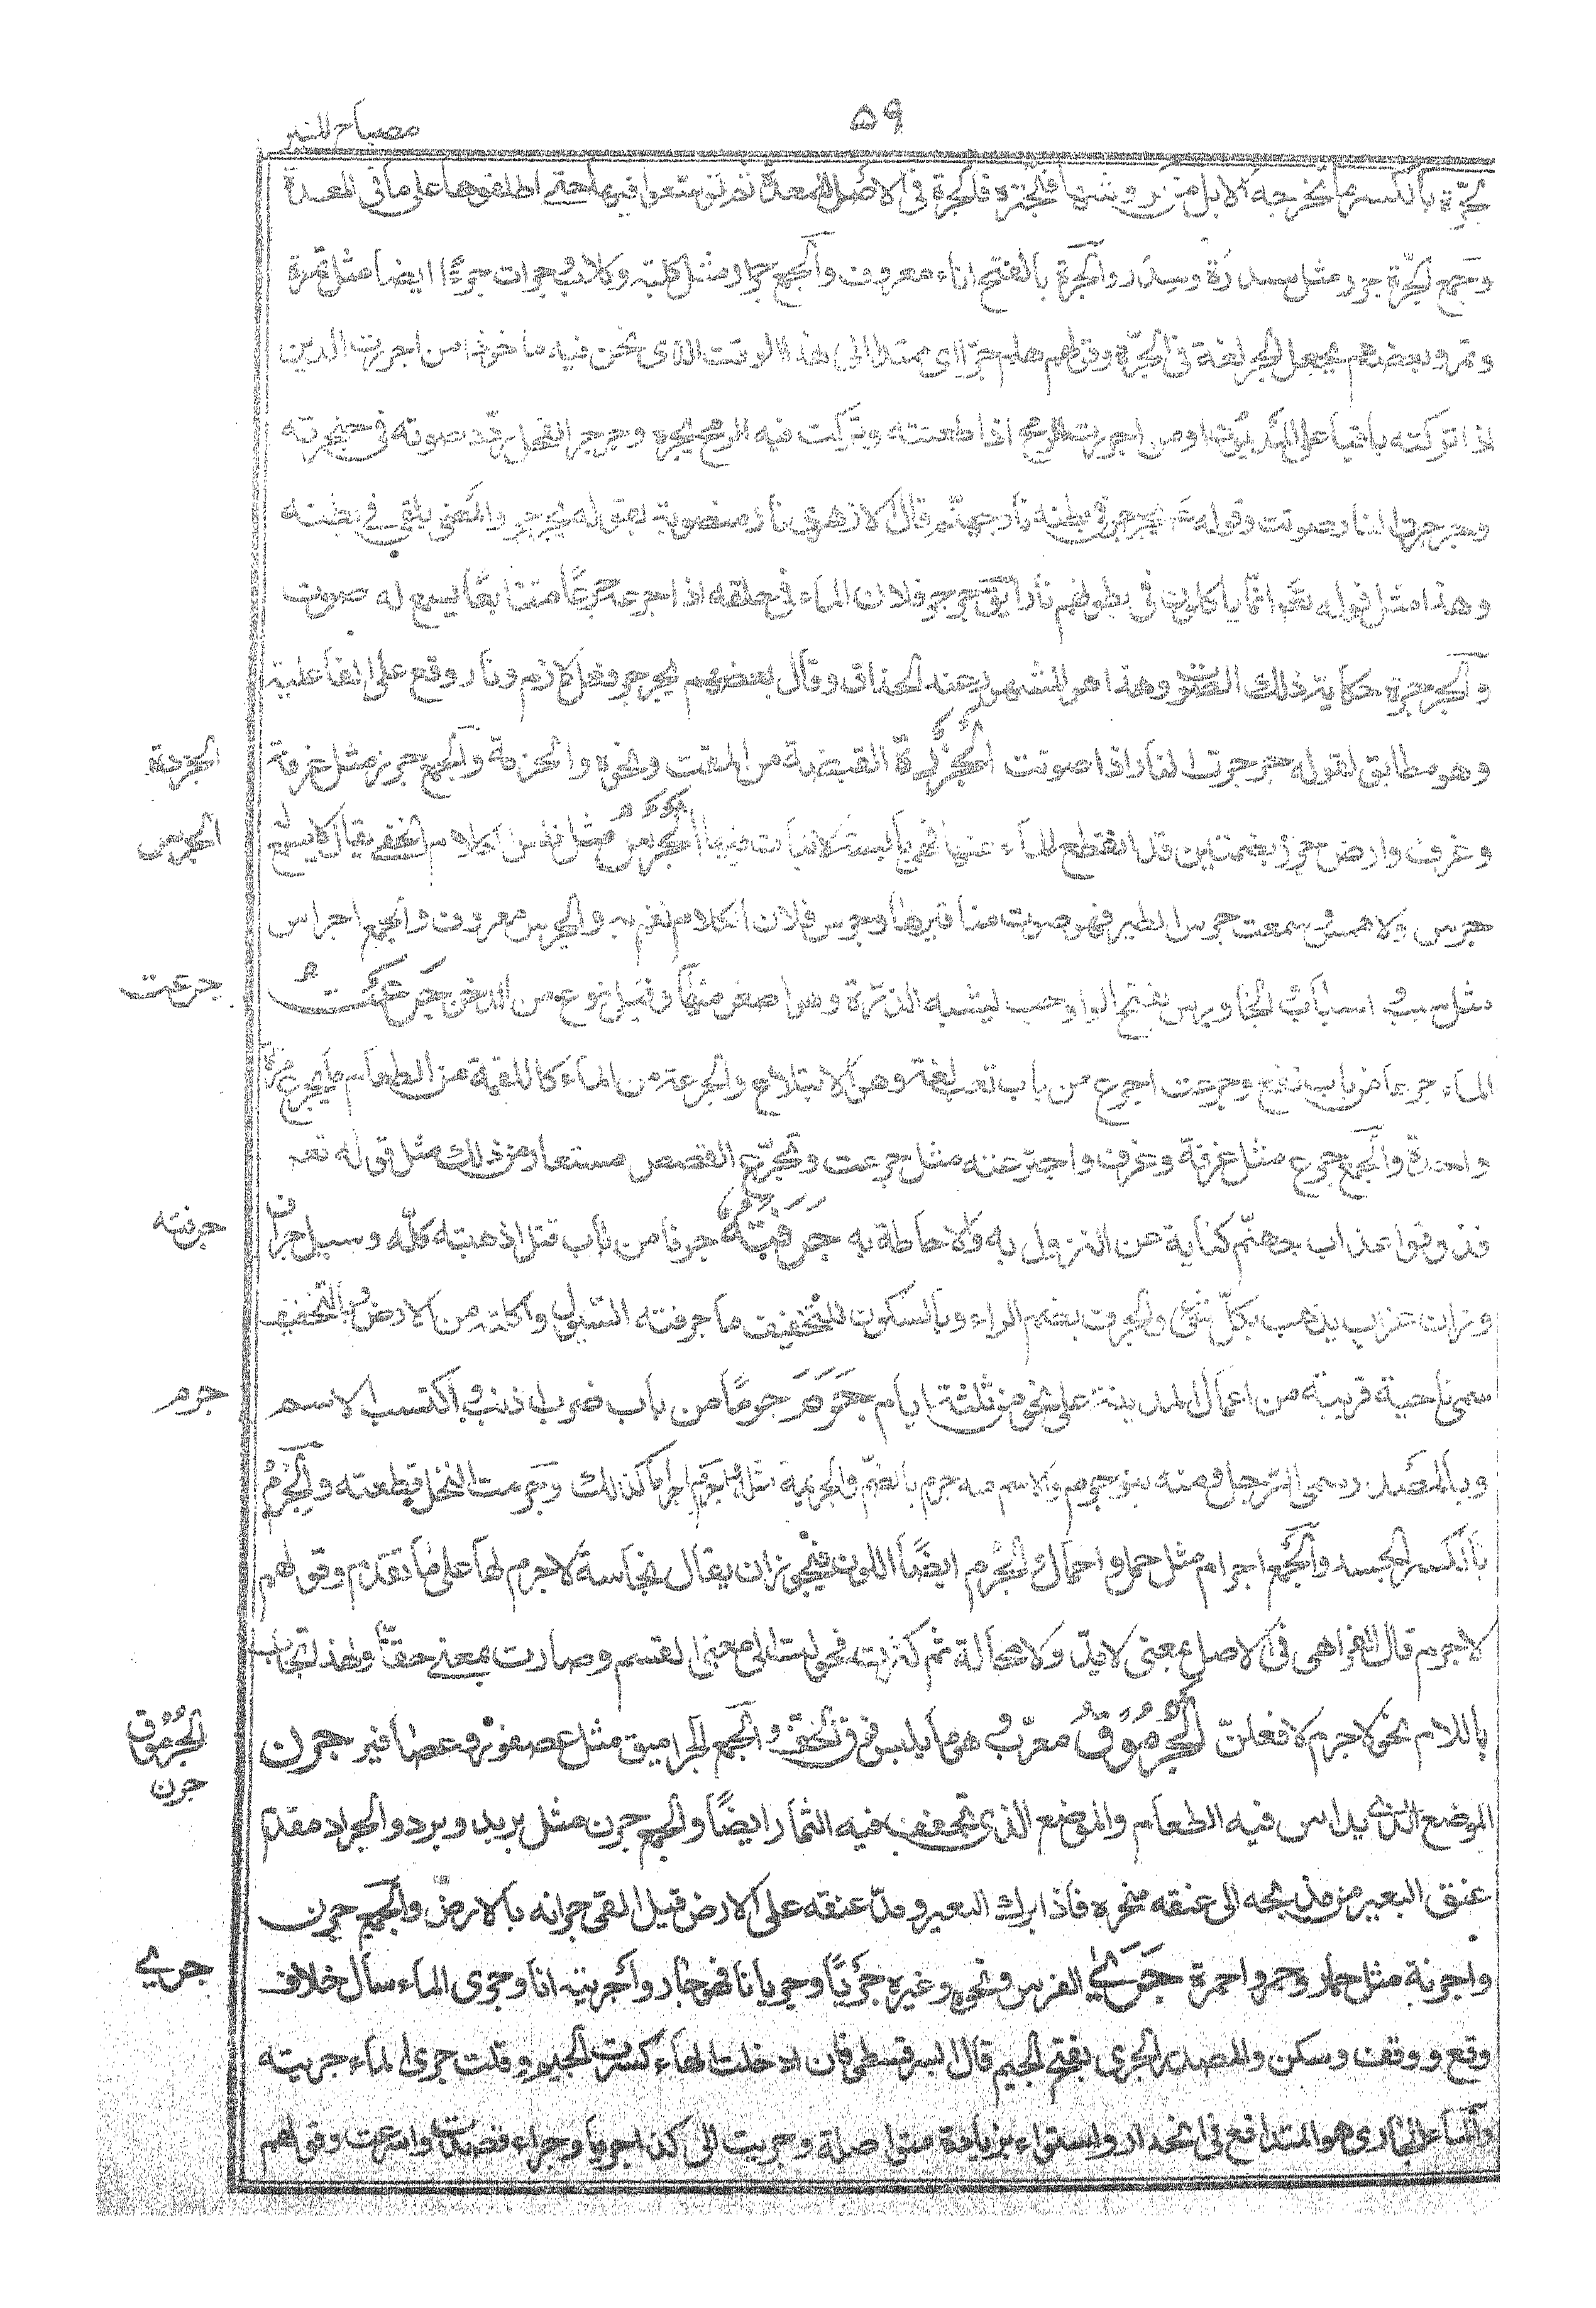 ۵۹
مصباح المنير
بالكسر ما تخرجه الابل من كروشها فتجتره فالجرة في الاصل للمعدة ثم توسعوا فيها حتى اطلقوها على ما في المعدة
وجمع الجرة جرر مثل سدرة وسدر والجرة بالفتح اناء معروف والجمع جرار مثل كلبة وكلاب وجرات وجر ايضا مثل تمرة
وتمر وبعضهم يجعل الجر لغة في الجرة وقولهم هلم جرا اى ممتدا الى هذا الوقت الذى نحن فيه ماخوذ من اجررت الدين
اذا تركته باقيا على المديون او من اجررته الرمح اذا طعنته وتركت فيه الرمح يجره وجرجر الفحل ردد صوته في حنجرته
وجرجرت النار صوتت وقوله يجرجر في بطنه نار جهنم قال الازهرى نار منصوبة بقوله يجرجر والمعنى يلقى في بطنه
وهذا مثل قوله تعـ انما ياكلون في بطونهم نارا يقـ جرجر فلان الماء في حلقه اذا جرعه جرعا متتابعا يسمع له صوت
والجرجرة حكاية ذلك الصوت وهذا هو المشهور عند الحذاق وقال بعضهم يجرجر فعل لازم ونار وقع على الفاعلية
وهو مطابق لقوله جرجرت النار اذا صوتت الجرزة القبضة من القت ونحوه والحزمة والجمع جرز مثل غرفة
الجرزة
وغرف وارض جرز بضمتين قد انقطع الماء عنها فهى يابسة لا نبات فيها الجرس مثل فلس الكلام الخفى يقال لا يسمع له
الجرس
جرس ولا همس وسمعت جرس الطير فهو صوت مناقيرها وجرس فلان الكلام نغم به والجرس معروف والجمع اجراس
مثل سبب واسباب والجاورس بفتح الواو حب يشبه الذرة وهو اصغر منها وقيل نوع من الدخن جرعت
جرعت
الماء جرعا من باب نفع وجرعت اجرع من باب تعب لغة وهو الابتلاع والجرعة من الماء كاللقمة من الطعام ما يجرع مرة
واحدة والجمع جرع مثل غرفة وغرف واجترعته مثل جرعت وتجرع الغصص مستعار من ذلك مثل قوله تعـ
فذوقوا عذاب جهنم كناية عن النزول به والاحاطة به جرفته جرفا من باب قتل اذهبته كله وسيل جراف
جرفته
وزان غراب يذهب بكل شئ والجرف بضم الراء وبالسكون للتخفيف ما جرفته السيول واكلته من الارض وبالتخفيف
سمى ناحية قريبة من اعمال المدينة على نحو من ثلثة ايام جرم جرما من باب ضرب اذنب واكتسب الاسم
جرم
وبالمصدر سمى الرجل ومنه بنو جرم والاسم منه جرم بالضم والجريمة مثله واجرم اجراما كذلك وجرمت النخل قطعته والجرم
بالكسر الجسد والجمع اجرام مثل حمل واحمال والجرم ايضا اللون فيجوز ان يقال نجاسة لا جرم لها على ما تقدم وقولهم
لا جرم قال الفراء هى في الاصل بمعنى لا بد ولا محالة ثم كثرت فحولت الى معنى القسم وصارت بمعنى حقا ولهذا تجاب
باللام نحو لا جرم لافعلن الجرموق معرب وهو ما يلبس فوق الخف والجمع الجراميق مثل عصفور وعصافير جرن
الجرموق
جرن
الموضع الذى يداس فيه الطعام والموضع الذى تجفف فيه الثمار ايضا والجمع جرن مثل بريد وبرد والجران مقدم
عنق البعير من مذبحه الى عنقه منحره فاذا برك البعير ومد عنقه على الارض قيل القى جرانه بالارض والجمع جرن
واجرنة مثل حمار وحمر واحمرة جرى الفرس ونحوه وغيره جريا وجريانا فهو جار واجريته انا وجرى الماء سال خلاف
جرى
وقع ووقف وسكن والمصدر الجرى بفتح الجيم قال السرقسطى فان ادخلت الهاء كسرت الجيم وقلت جرى الماء جرية
والماء الجارى هو المتدافع في انحدار واستواء بزيادة متواصلة وجريت الى كذا جريا وجراء قصدت واسرعت وقولهم